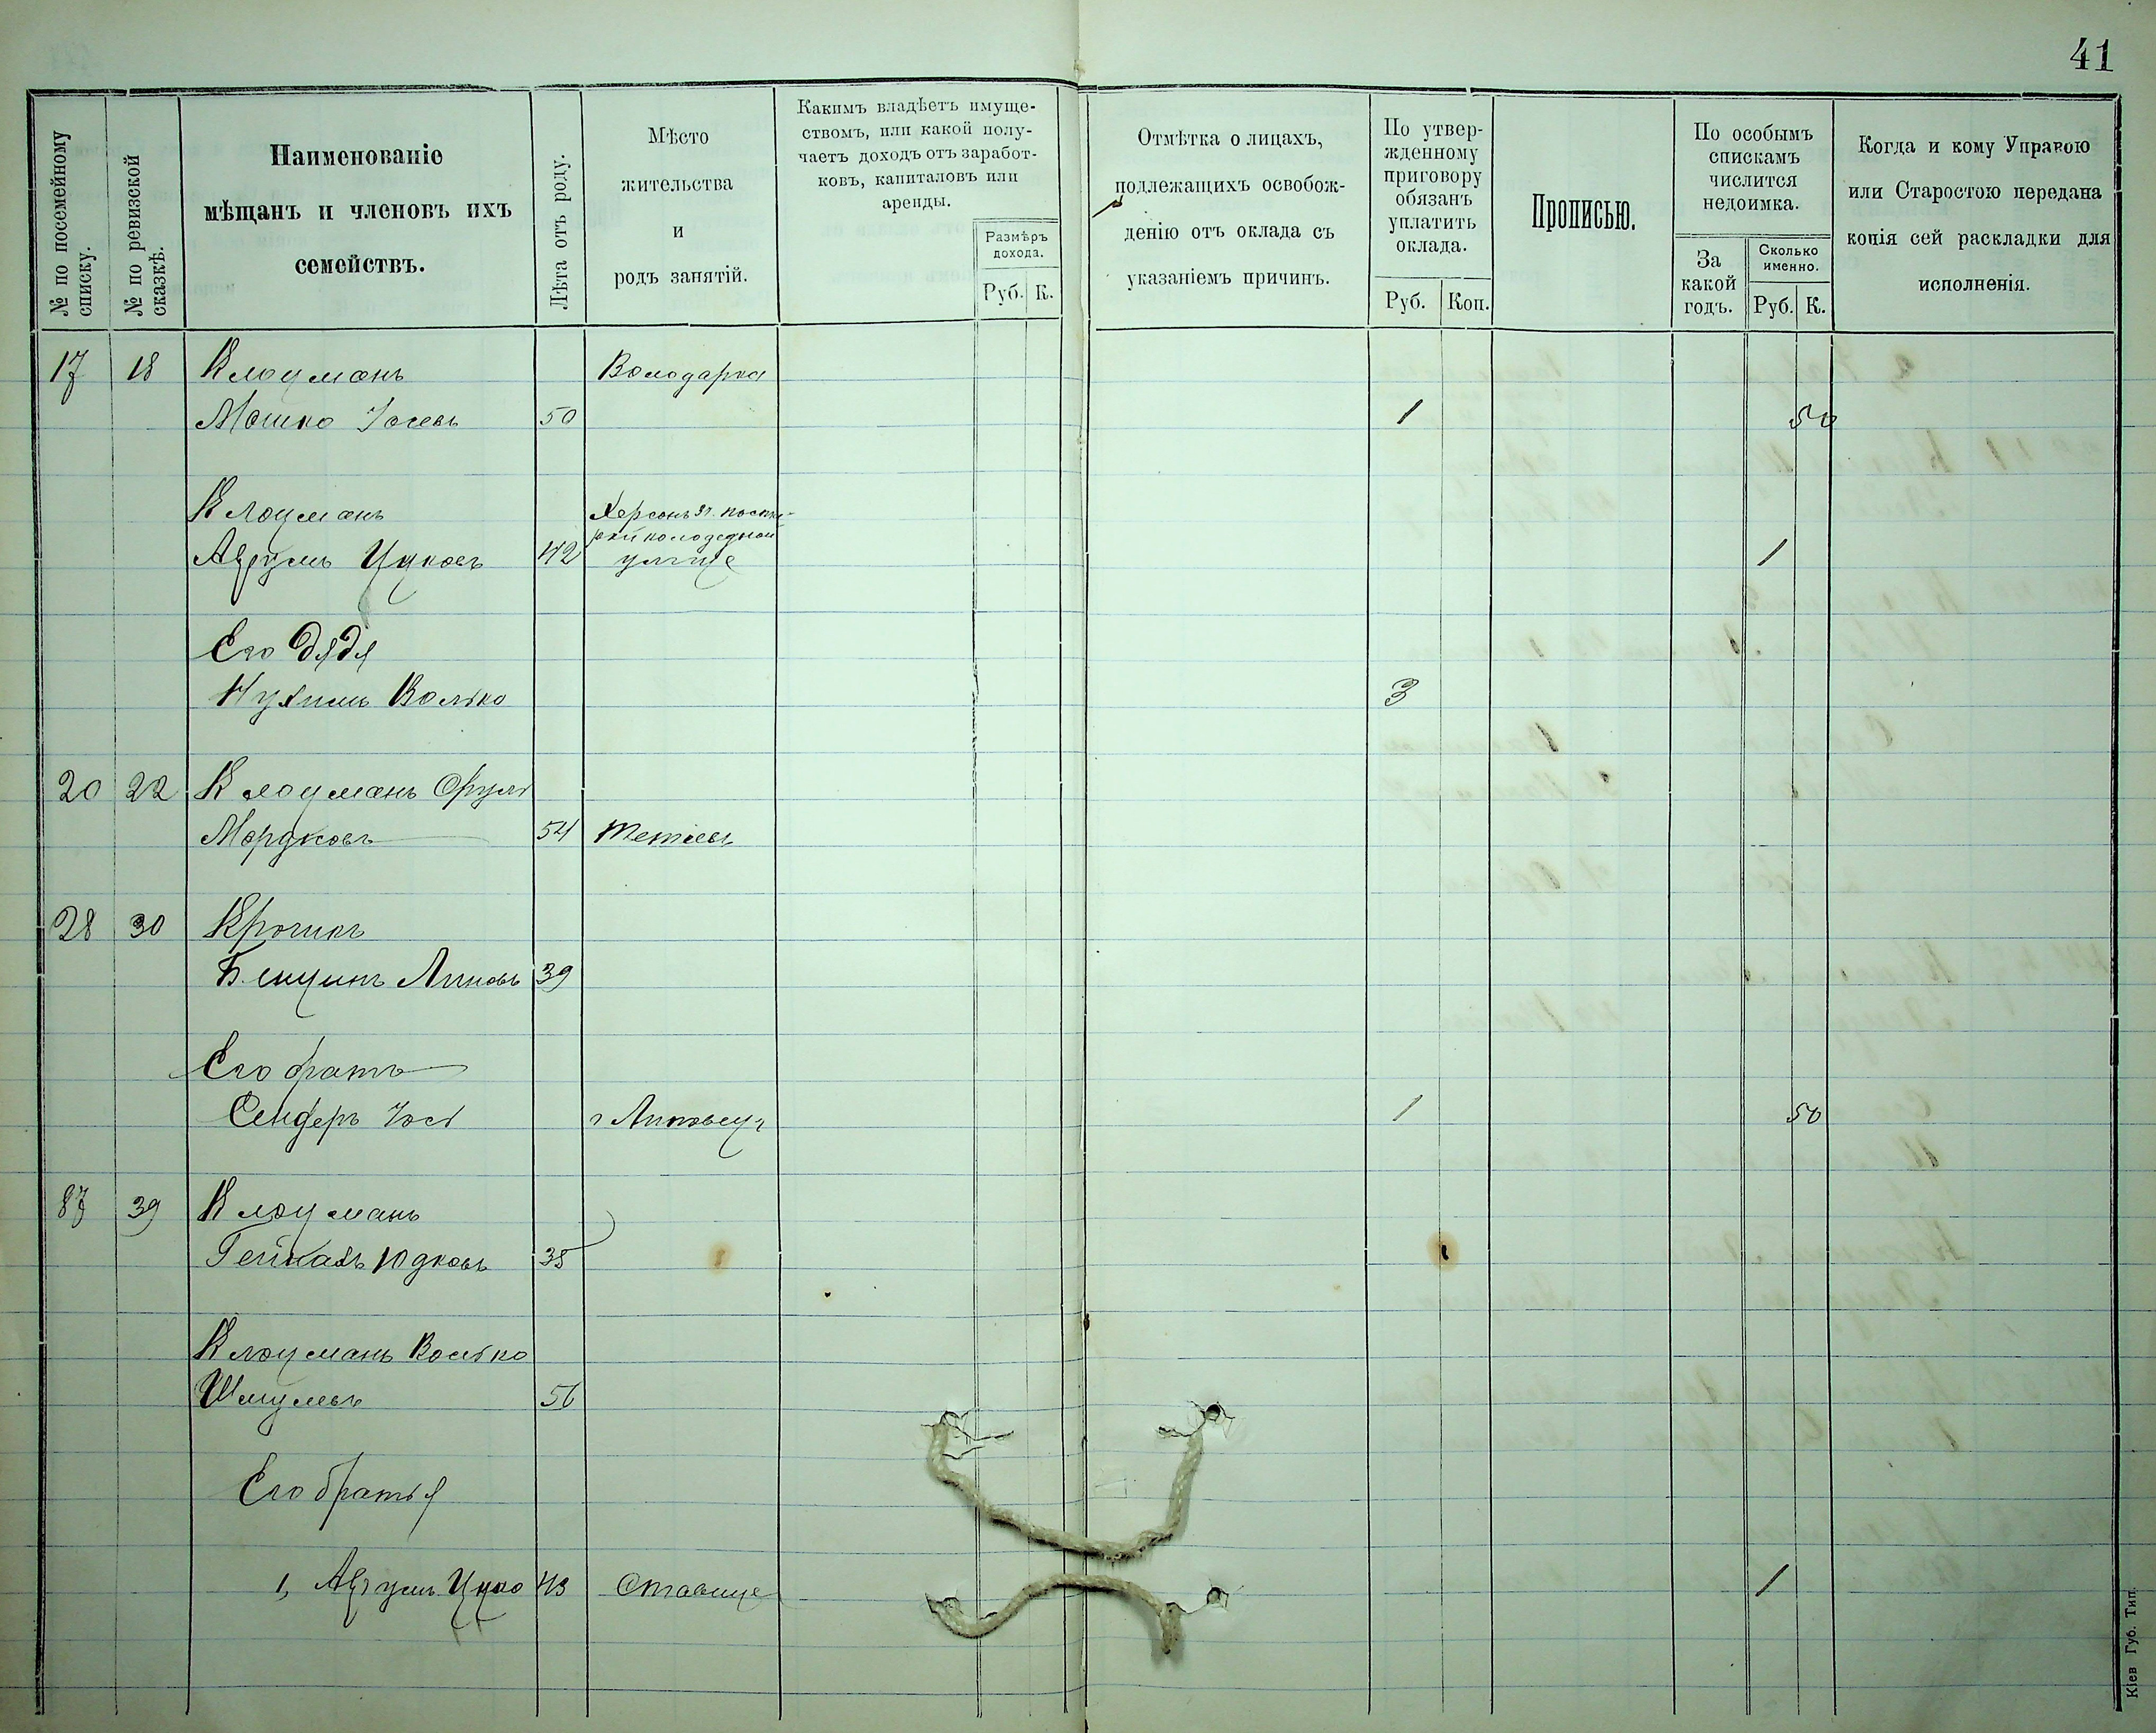 41
№ по посемейному списку.
№ по ревизской сказкѣ.
Наименованіе
мѣщанъ и членовъ ихъ
семействъ.
Лѣта отъ роду.
Мѣсто
жительства
и
родъ занятій.
Какимъ владѣетъ имуще-
ствомъ, или какой полу-
чаетъ доходъ отъ заработ-
ковъ, капиталовъ или
аренды.
Размѣръ
дохода.
Руб. К.
Отмѣтка о лицахъ,
подлежащихъ освобож-
денію отъ оклада съ
указаніемъ причинъ.
По утвер-
жденному
приговору
обязанъ
уплатить
оклада.
Руб. Коп.
Прописью.
По особымъ
спискамъ
числится
недоимка.
За
какой
годъ.
Сколько
именно.
Руб. К.
Когда и кому Управою
или Старостою передана
копія сей раскладки для
исполненія.
17 18 Клоцманъ Володарка
Мошко Іосевъ 50 1 50
Клоцманъ Херсонъ
Аврумъ Ицковъ 42 улице 1
Его дядя
Нухимъ Волько 3
20 22 Клоцманъ Сруль
Мордковъ 54 Тетіевъ
28 30
39
Его братъ
Сендеръ Іось г Липовецъ 1 50
87 39 Клоцманъ
Юдковъ 35
Клоцманъ Волько
Шмулевъ 56
Его братья
1, Аврумъ Ицко 43 Ставище 1
Кіев Губ. Тип.